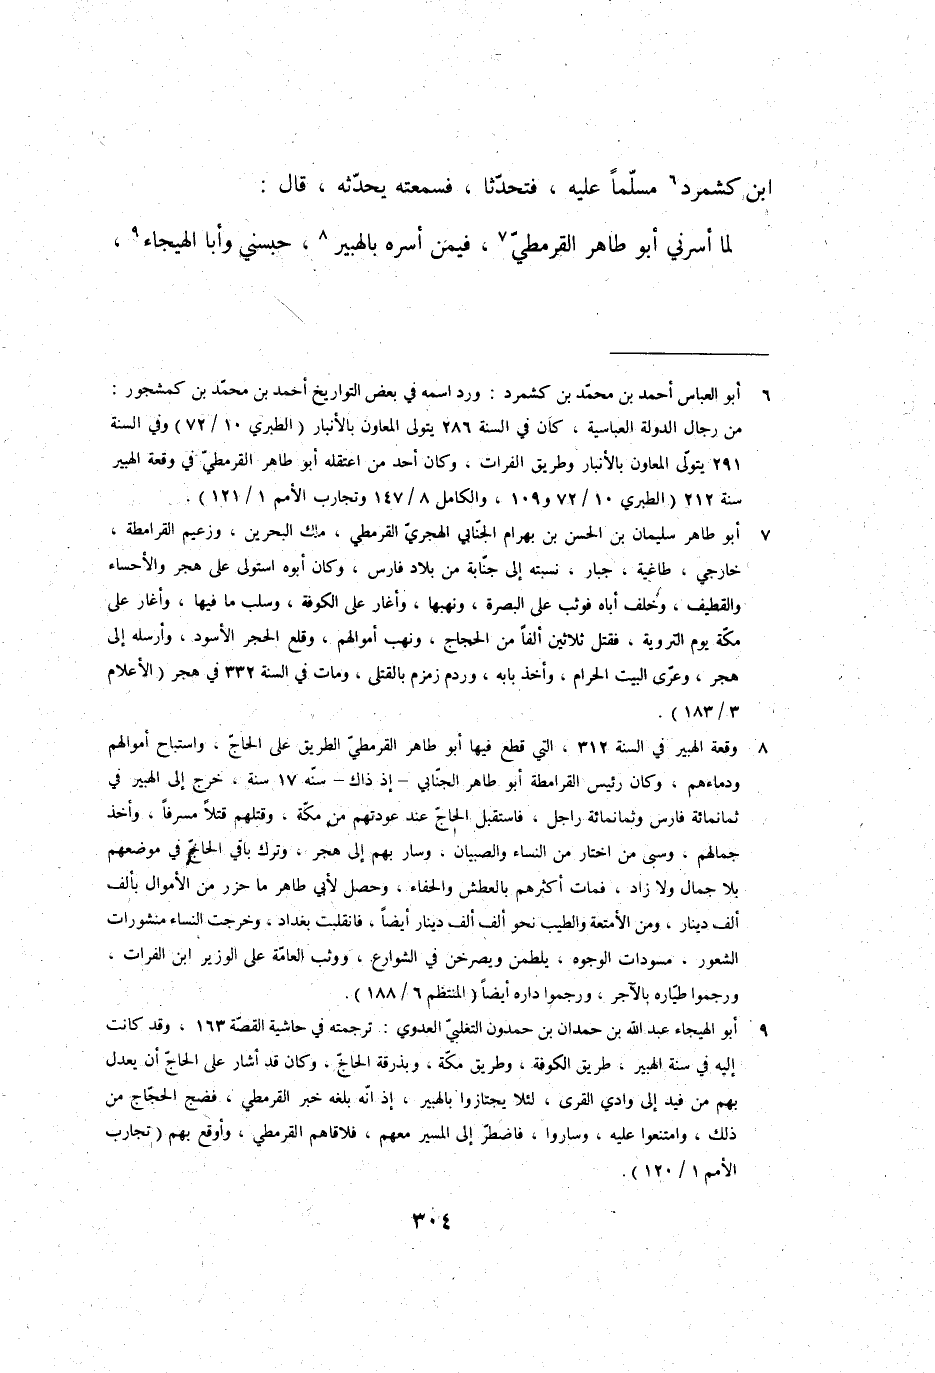 ابن كشمرد٦ مسلّماً عليه ، فتحدّثا ، فسمعته يحدّثه ، قال :
لما أسرني أبو طاهر القرمطيّ٧ ، فيمن أسره بالهبير٨ ، حبسني وأبا الهيجاء٩ ،
٦ أبو العباس أحمد بن محمّد بن كشمرد : ورد اسمه في بعض التواريخ أحمد بن محمّد بن كمشجور :
من رجال الدولة العباسية ، كان في السنة ٢٨٦ يتولى المعاون بالأنبار ( الطبري ١٠ / ٧٢ ) وفي السنة
٢٩١ يتولّى المعاون بالأنبار وطريق الفرات ، وكان أحد من اعتقله أبو طاهر القرمطيّ في وقعة الهبير
سنة ٢١٢ ( الطبري ١٠ / ٧٢ و١٠٩ ، والكامل ٨ / ١٤٧ وتجارب الأمم ١ / ١٢١ ) .
٧ أبو طاهر سليمان بن الحسن بن بهرام الجنّابي الهجريّ القرمطي ، ملك البحرين ، وزعيم القرامطة ،
خارجي ، طاغية ، جبار ، نسبته إلى جنّابة من بلاد فارس ، وكان أبوه استولى على هجر والأحساء
والقطيف ، وخلف أباه فوثب على البصرة ، ونهبها ، وأغار على الكوفة ، وسلب ما فيها ، وأغار على
مكّة يوم التروية ، فقتل ثلاثين ألفاً من الحجاج ، ونهب أموالهم ، وقلع الحجر الأسود ، وأرسله إلى
هجر ، وعرّى البيت الحرام ، وأخذ بابه ، وردم زمزم بالقتلى ، ومات في السنة ٣٣٢ في هجر ( الأعلام
٣ / ١٨٣ ) .
٨ وقعة الهبير في السنة ٣١٢ ، التي قطع فيها أبو طاهر القرمطيّ الطريق على الحاجّ ، واستباح أموالهم
ودماءهم ، وكان رئيس القرامطة أبو طاهر الجنّابي - إذ ذاك - سنّه ١٧ سنة ، خرج إلى الهبير في
ثمانمائة فارس وثمانمائة راجل ، فاستقبل الحاجّ عند عودتهم من مكّة ، وقتلهم قتلاً مسرفاً ، وأخذ
جمالهم ، وسبى من اختار من النساء والصبيان ، وسار بهم إلى هجر ، وترك باقي الحاجّ في موضعهم
بلا جمال ولا زاد ، فمات أكثرهم بالعطش والحفاء ، وحصل لأبي طاهر ما حزر من الأموال بألف
ألف دينار ، ومن الأمتعة والطيب نحو ألف ألف دينار أيضاً ، فانقلبت بغداد ، وخرجت النساء منشورات
الشعور ، مسودات الوجوه ، يلطمن ويصرخن في الشوارع ، ووثب العامّة على الوزير ابن الفرات ،
ورجموا طيّاره بالآجر ، ورجموا داره أيضاً ( المنتظم ٦ / ١٨٨ ) .
٩ أبو الهيجاء عبد الله بن حمدان بن حمدون التغلبيّ العدوي : ترجمته في حاشية القصّة ١٦٣ ، وقد كانت
إليه في سنة الهبير ، طريق الكوفة ، وطريق مكّة ، وبذرقة الحاجّ ، وكان قد أشار على الحاجّ أن يعدل
بهم من فيد إلى وادي القرى ، لئلا يجتازوا بالهبير ، إذ انّه بلغه خبر القرمطي ، فضج الحجّاج من
ذلك ، وامتنعوا عليه ، وساروا ، فاضطرّ إلى المسير معهم ، فلاقاهم القرمطي ، وأوقع بهم ( تجارب
الأمم ١ / ١٢٠ ) .
٣٠٤